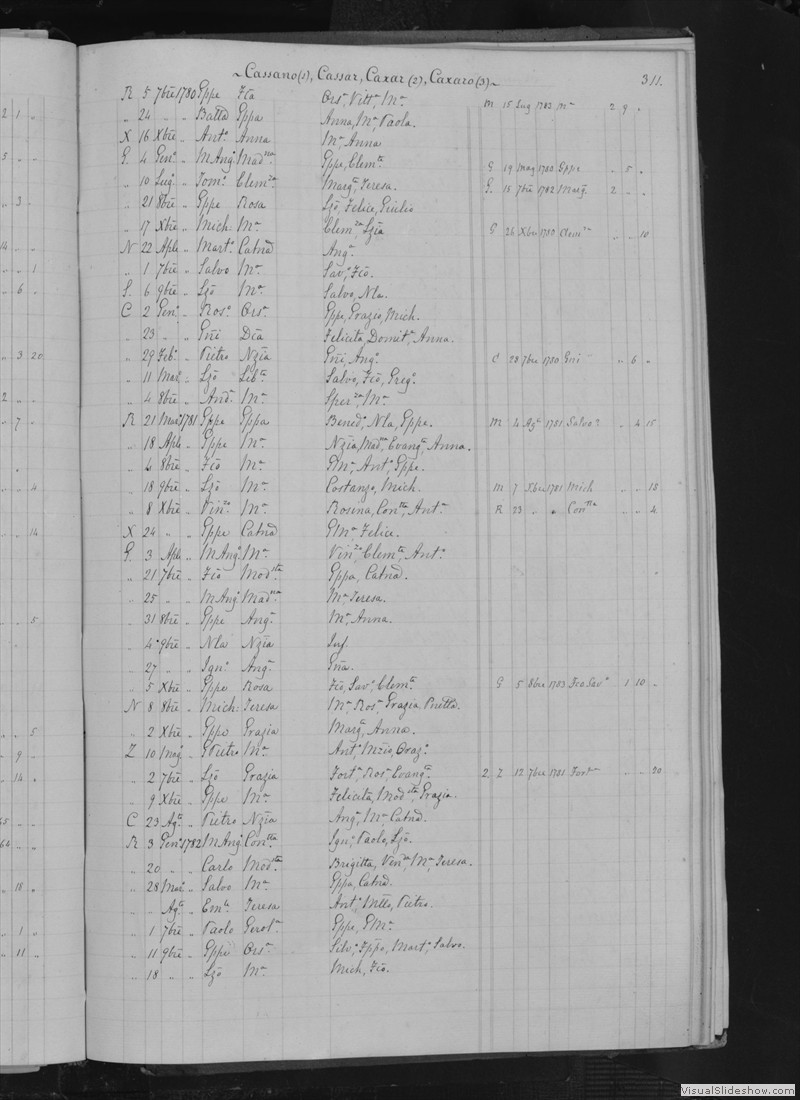 ~Cassano(1), Cassar, Caxar (2), Caxaro(3)~ 311.
R 5 7bre 1780 Gppe Fca Ors.ª Vitt.ª M.ª M 15 Lug 1783 M.ª 2 9 „
„ 24 „ „ Batta Gppa Anna, M.ª Paola.
X 16 Xbre „ Ant.º Anna M.ª Anna
G. 4 Gen.º „ M Ang.º Mad.na Gppe, Clem.ta G 19 Mag 1780 Gppe „ 5 „
„ 10 Lug. „ Tom.º Clem.za Marg.ª Teresa. G. 15 7bre 1782 Marg. 2 „ „
„ 21 8bre „ Gppe Rosa Lzo, Felice, Giulio
„ 17 Xbre „ Mich. M.ª Clem.za Lzia G 26 Xbre 1780 Clem.za „ „ 10
N 22 Aple „ Mart.º Catna Ang.ª
„ 1 7bre „ Salvo M.ª Sav.ª Fco.
S. 6 9bre „ Lzo M.ª Salvo, Nla.
C 2 Gen.º „ Ros.º Ors.ª Gppe, Grazio, Mich.
„ 23 „ „ Gni Dca Felicita, Domit.ª Anna.
„ 29 Feb.º „ Pietro Nzia Gni, Ang.º C 28 7bre 1780 Gni „ 6 „
„ 11 Mar. „ Lzo Lib.ta Salvo, Fco, Greg.º
„ 4 8bre „ And.ª M.ª Sper.za M.ª
R 21 Mar.º 1781 Gppe Gppa Bened.ª Nla, Gppe. M 4 Ag.º 1781 Salvo „ 4 15
„ 18 Aple „ Gppe M.ª Nzia, Mad.na Evang.ª Anna.
„ 4 8bre „ Fco M.ª GM.ª Ant.º Gppe.
„ 18 9bre „ Lzo M.ª Costanzo, Mich. M 7 Xbre 1781 Mich „ „ 18
„ 8 Xbre „ Vin.zo M.ª Rosina, Con.tta Ant.ª R 23 „ „ Con.tta „ „ 4.
X 24 „ „ Gppe Catna GM.ª Felice.
G. 3 Aple „ M Ang.º M.ª Vin.zo Clem.ta Ant.º
„ 21 7bre „ Fco Mod.sta Gppa, Catna.
„ 25 „ „ M Ang.º Mad.na M.ª Teresa.
„ 31 8bre „ Gppe Ang.ª M.ª Anna.
„ 4 9bre „ Nla Nzia Inf.
„ 27 „ „ Ign.º Ang.ª Gna.
„ 5 Xbre „ Gppe Rosa Fco, Sav.º Clem.ta G 5 8bre 1783 Fco Sav.º 1 10 „
N 8 8bre „ Mich: Teresa M.ª Ros.ª Grazia, Prietta.
„ 2 Xbre „ Gppe Grazia Marg.ª Anna.
Z 10 Mag.º „ GPietro M.ª Ant.º Mzio, Oraz.º
„ 2 7bre „ Lzo Grazia Fort.ª Ros.ª Evang.ª 2 Z 12 7bre 1781 Fort.ª „ „ 20
„ 9 Xbre „ Gppe M.ª Felicita, Mod.sta Grazia.
C 23 Ag.to „ Pietro Nzia Ang.ª M.ª Catna.
R 3 Gen.º 1782 M Ang.º Con.tta Ign.º Paolo, Lzo.
„ 20 „ „ Carlo Mod.sta Brigitta, Ven.da M.ª Teresa.
„ 28 Mar.º „ Salvo M.ª Gppa, Catna.
„ „ Ag.to „ Em.le Teresa Ant.º Mtto, Pietro.
„ 1 7bre „ Paolo Gerol.ª Gppe, GM.ª
„ 11 9bre „ Gppe Ors.ª Silv.º Fppo, Mart.º Salvo.
„ 18 „ „ Lzo M.ª Mich, Fco.
VisualSlideshow.com